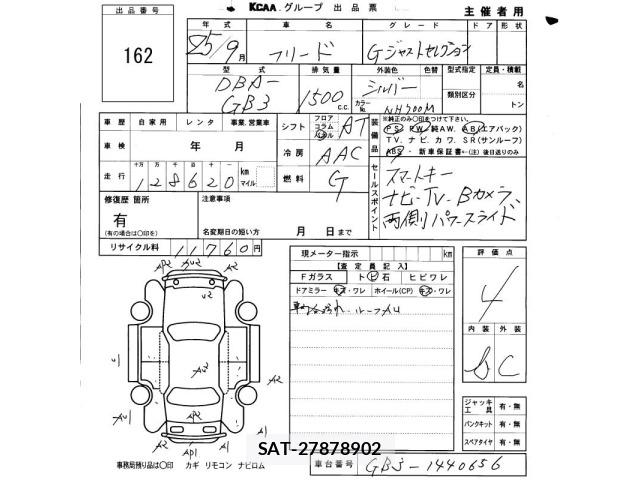 出品番号
162
KCAA グループ 出品票 主催者用
年式 車名 グレード ドア 形状
25/9月 フリード Gジャストセレクション
型式 排気量 外装色 色替 型式指定 定員・積載
DBA-GB3 1500 c.c. シルバー カラーNo. NH700M 類別区分 名 トン
車歴 自家用 レンタ 事業、営業車
シフト フロア コラム AT
装備品 ※純正のみ〇印をつけて下さい。
PS PW 純AW. AB(エアバック)
TV. ナビ. カワ. SR(サンルーフ)
ABS ・新車保証書・(注)後日送りのみ
車検 年 月
冷房 AAC
走行 十万 万 千 百 十
128620 km マイル
燃料 G
セールスポイント
スマートキー
ナビ-TV-Bカメラ
両側パワースライド
修復歴 箇所
有
(有の場合は〇印を)
注意事項
名変期日の短い方 月 日まで
リサイクル料 11760円
現メーター指示 km
【査定員記入】
Fガラス トビ石 ヒビワレ
ドアミラー キズ・ワレ ホイール(CP) キズ・ワレ
ルーフAU
評価点
4
内装 外装
b C
ジャッキ工具 有・無
パンクキット 有・無
スペアタイヤ 有・無
AP2 A2
U2
A3
U1
A2
AU1
AU2
A2 A1
AP1
SAT-27878902
事務局残り品は〇印 カギ リモコン ナビロム
車台番号 GB3-1440656